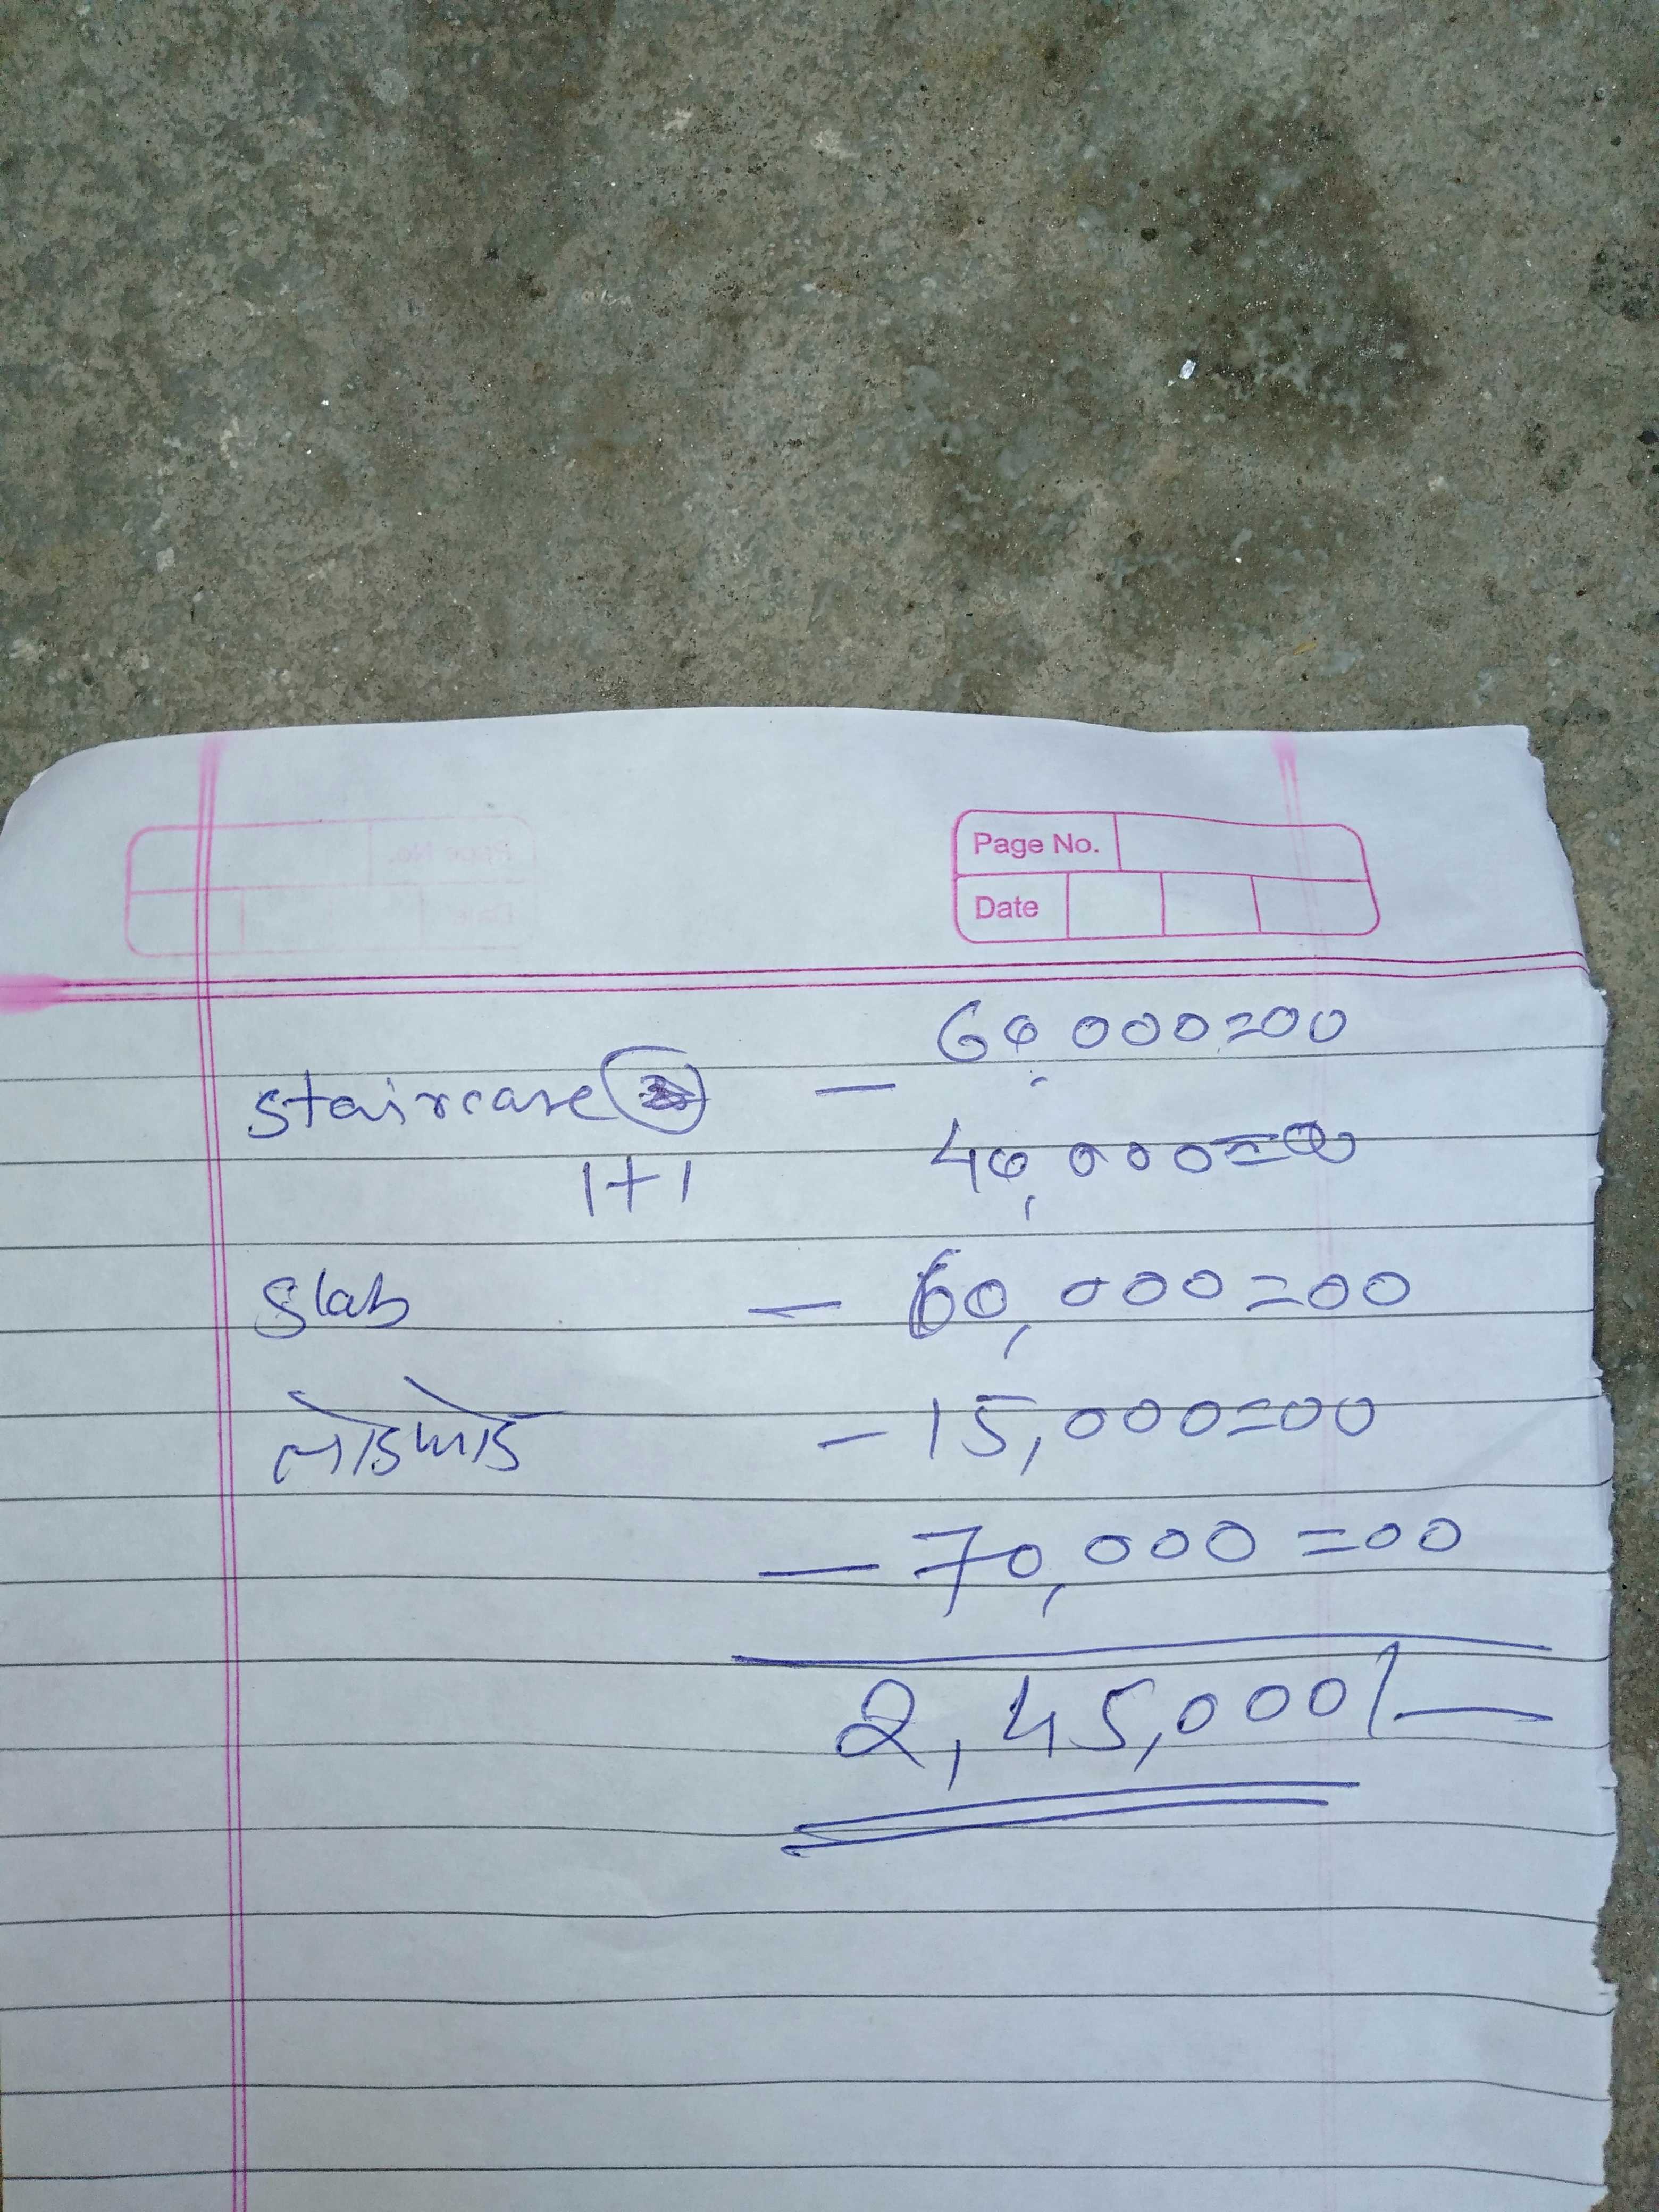 Page No.
Date
60,000=00
staircase —
40,000=00
1+1
Slab — 60,000=00
तोडफोड — 15,000=00
— 70,000=00
2,45,000/—